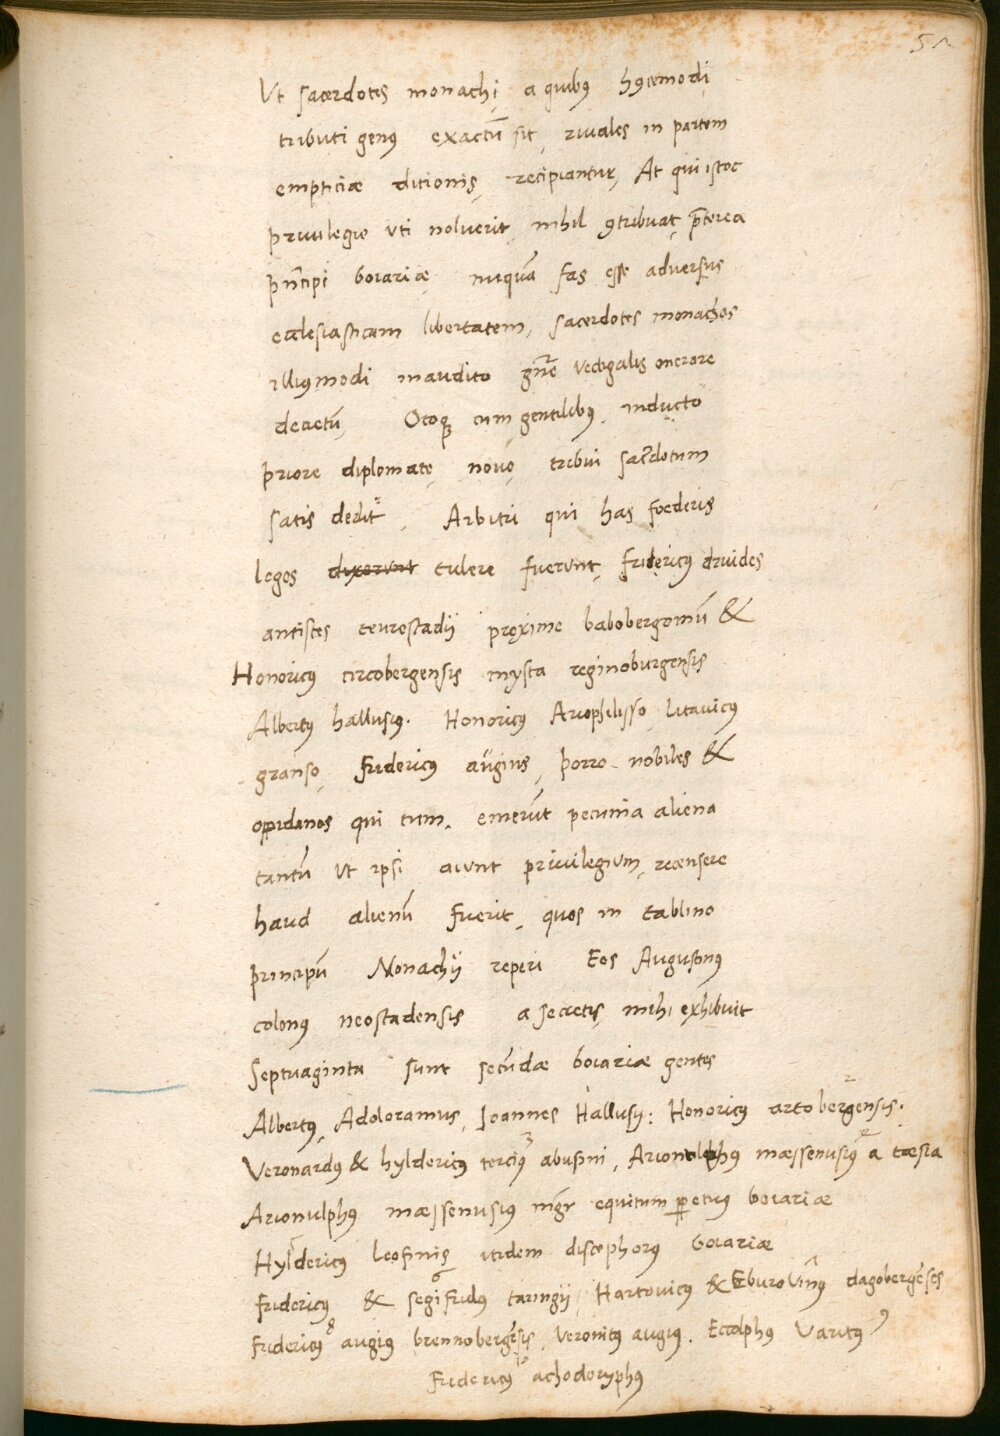 51
Ut sacerdotes monachi a quibus hꝯcemodi
tributi genus exactū sit, rivales in partem
empticiæ ditionis, recipiantur, At qui istoc
privilegio uti noluerit, nihil ꝯtribuat, p̄terea
pn̄cipi boiariæ nequā fas esse adversus
ecclesiasticam libertatem, sacerdotes monachos
illiusmodi inaudito gn̄re vectigalis onerare
decretū, Otoq; cum gentilibus inducto
priore diplomate novo tribui sacrdotum
satis dedit, Arbitri qui has foederis
leges dixerunt tulere fuerunt, fridericus druides
antistes teurostadij proxime babobergomū &
Honoricus circobergensis mysta reginoburgensis
Albertus hallusius. Honoricus Ariophilisso litavicus
granso, fridericus augius, porro nobiles &
oppidanos qui tum, emerūt pecunia aliena
tantū ut ipsi aiunt privilegium, recensere
haud alienū fuerit, quos in tablino
principū Monachij reperi Eos Augustinus
colonus neostadensis a secretis mihi exhibuit
Septuaginta sunt secūdæ boiariæ gentes
Albertus, Adoloramus, Joannes Hallusij: Honoricus artobergensis. 2
Veronardus & hyldericus tercius 3 abusini, Arionulphus mæssenusius 2 a tæsia
Arionulphus mæssenusius mgr equitum ꝑpetuus boiariæ
Hyldericus leofinis itidem discophorus boiariæ
fridericus & segifridus 6 taringij, Hartovicus & Eburovinus dagobergēses
fridericus 8 augius brennobergēsis, Veronicus augius. Ecolphus Varitus 9
Fridericus 10 achodoryphus